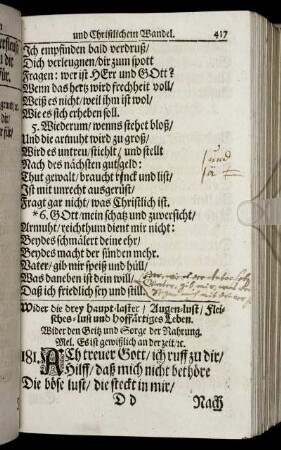 und Christlichem Wandel. 417
Ich empfinden bald verdruß/
Dich verleugnen/dir zum spott
Fragen: wer ist HErr und GOtt?
Wenn das hertz wird frechheit voll/
Weiß es nicht/weil ihm ist wol/
Wie es sich erheben soll.
5. Wiederum/wenns stehet bloß/
Und die armuht wird zu groß/
Wird es untreu/stiehlt/ und stellt
Nach des nächsten gut geld:
Thut gewalt/braucht ränck und list/
Ist mit unrecht ausgerüst/
Fragt gar nicht/was Christlich ist.
*6. GOtt/mein schatz und zuversicht/
Armuht/reichthum dient mir nicht:
Beydes schmälert deine ehr/
Beydes macht der sünden mehr.
Vater/gib mir speiß und hüll/
Was daneben ist dein will/
Daß ich friedlich sey und still.
Wider die drey haupt-laster/ Augen-lust/Flei-
sches-lust und hoffärtiges Leben.
Wider den Geitz und Sorge der Nahrung.
Mel. Es ist gewißlich an der zeit/ec.
181. ACh treuer Gott/ich ruff zu dir/
Hilff/daß mich nicht bethöre
Die böse lust/die steckt in mir/
D d Nach